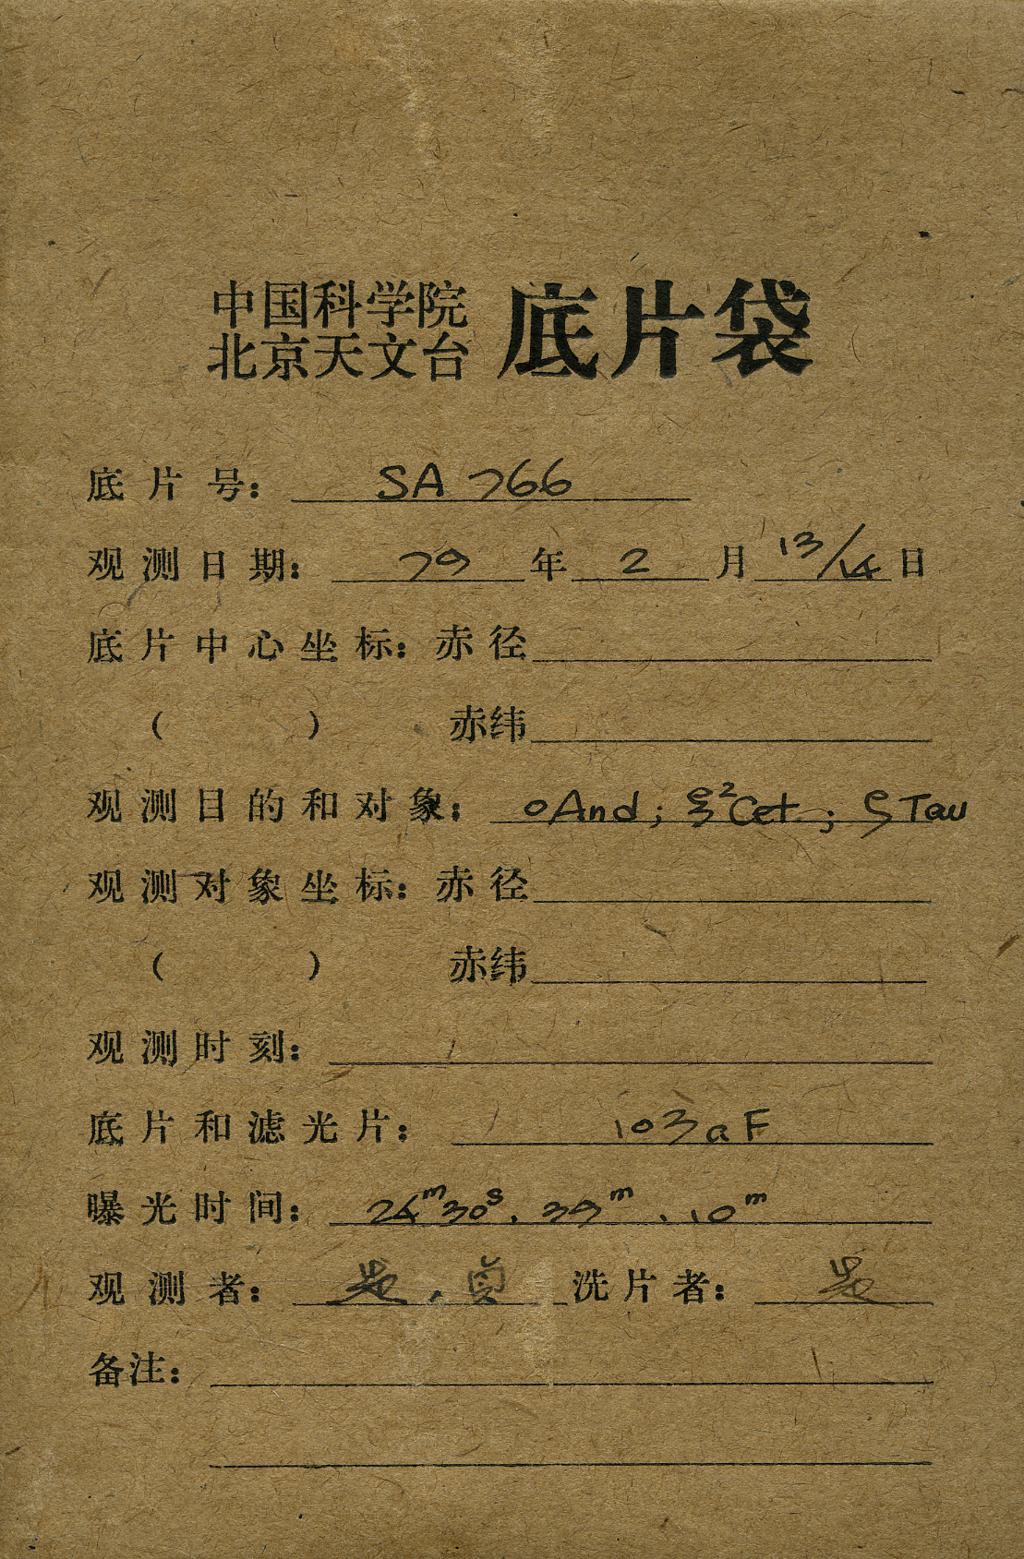 中国科学院
北京天文台 底片袋
底片号： SA 766
观测日期： 79 年 2 月 13/14 日
底片中心坐标：赤径
（ ） 赤纬
观测目的和对象： οAnd; ξ²Cet; ζTau
观测对象坐标：赤径
（ ） 赤纬
观测时刻：
底片和滤光片： 103aF
曝光时间： 24ᵐ30ˢ. 39ᵐ. 10ᵐ
观测者： 洗片者：
备注：